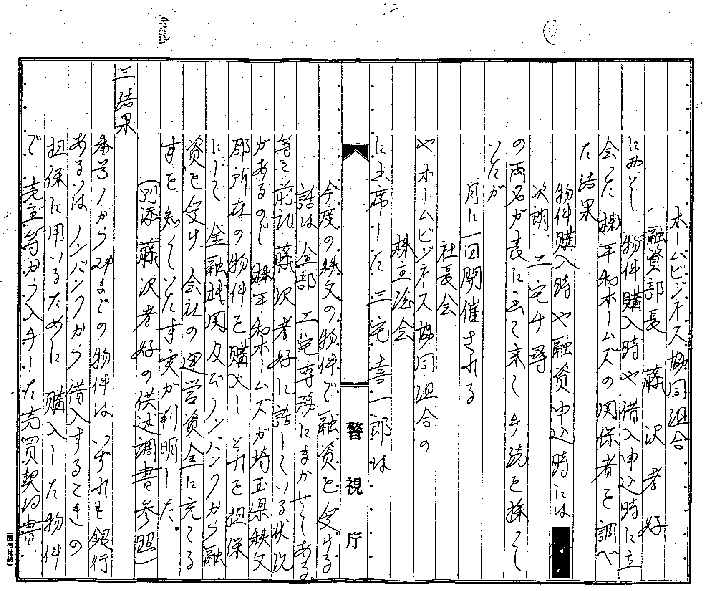 ホームビジネス協同組合
融資部長 藤沢孝好
に対し 物件購入時や借入申込時に立
会った ㈱平和ホームズの関係者を調べ
た結果
物件購入時や融資申込時には
次期 三宅専
の両名が表に出て来て 手続を採って
いたが
月に一回開催される
社長会
やホームビジネス協同組合の
株主総会
に出席した三宅喜一郎は
今度の秩父の物件で融資を受ける
話は全部 三宅専務にまかせてある
等と前記 藤沢孝好に話している状況
があるので ㈱平和ホームズが埼玉県秩父
郡所在の物件を購入し それを担保
にして 金融機関及びノンバンクから融
資を受け 会社の運営資金に充てる
事を熟していた事実が判明した。
(別添 藤沢孝好の供述調書参照)
三 結果
番号1から24までの物件は いずれも銀行
あるいはノンバンクから借入するときの
担保に用いるために 購入した物件
で 売主等から入手した売買契約書
警視庁